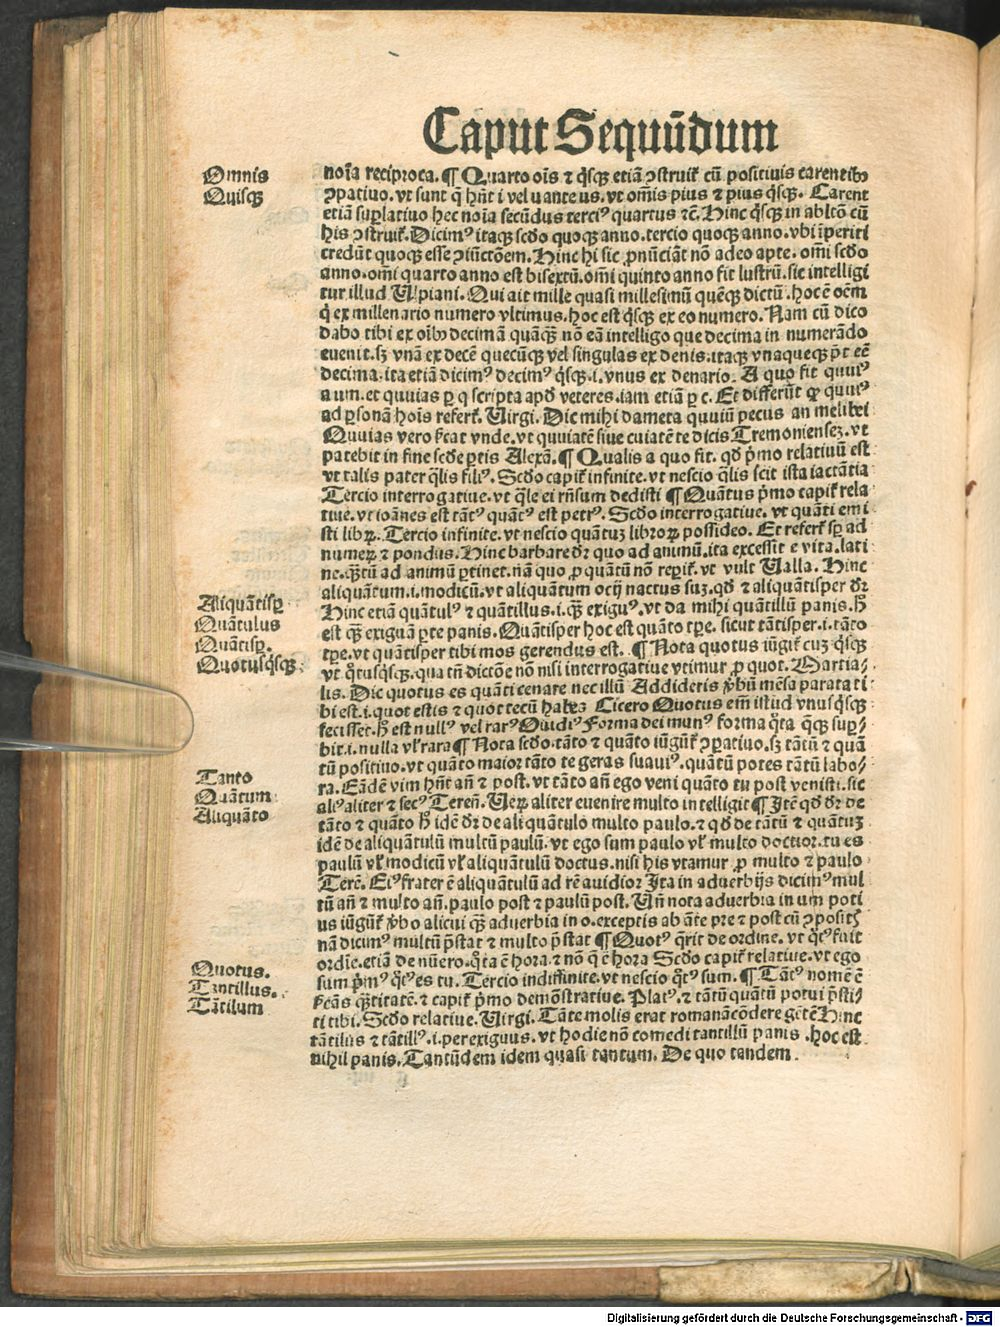 Caput Sequūdum
Omnis
Quisqꝫ
noīa reciproca. ¶ Quarto oīs ⁊ q̇sqꝫ etiā ꝯstruit̄ cū positiuis carentibꝰ
ꝯpatiuo. vt sunt q̄ hn̄t i vel u ante us. vt om̄is pius ⁊ pius q̇sqꝫ. Carent
etiā suꝑlatiuo hec noīa secūdus terciꝰ quartus ⁊c̄. Hinc q̇sqꝫ in abltō cū
his ꝯstruit̄. Dicimꝰ itaqꝫ scd̄o quoqꝫ anno. tercio quoqꝫ anno. vbi īperiti
credūt quoqꝫ esse ꝯiūctōem. Hinc hi sic ꝓnūciāt nō adeo apte. om̄i scd̄o
anno. om̄i quarto anno est bisextū. om̄i quinto anno fit lustrū. sic intelligi
tur illud Ulpiani. Qui ait mille quasi millesimū quēqꝫ dictū. hoc ē oēm
q̇ ex millenario numero vltimus. hoc est q̇sqꝫ ex eo numero. Nam cū dico
dabo tibi ex oībꝰ decimā quāqꝫ nō eā intelligo que decima in numerādo
euenit. sꝫ vnā ex decē quecūqꝫ vel singulas ex denis. itaqꝫ vnaqueqꝫ p̄t eē
decima. ita etiā dicimꝰ decimꝰ q̇sqꝫ .i. vnus ex denario. A quo fit quuiꝰ
a um. et quuias ꝑ q scripta apd̄ veteres. iam etiā ꝑ c. Et differūt qꝛ quuiꝰ
ad ꝑsonā hoīs refert̄. Virgi. Dic mihi dameta quuiū pecus an melibei
Quuias vero ſcat vnde. vt quuiatē siue cuiatē te dicis Tremoniensez. vt
patebit in fine scd̄e ꝑtis Alexā. ¶ Qualis a quo fit. qd̄ pͥmo relatiuū est
vt talis pater q̄lis filiꝰ. Scd̄o capit̄ infinite. vt nescio q̄lis scit ista iactātia
Tercio interrogatiue. vt q̄le ei rn̄sum dedisti ¶ Quātus pͥmo capit̄ rela
tiue. vt ioānes est tātꝰ quātꝰ est petrꝰ. Scd̄o interrogatiue. vt quāti emi
sti libꝝ. Tercio infinite. vt nescio quātuꝫ libroꝝ possideo. Et refert̄ sꝑ ad
numeꝝ ⁊ pondus. Hinc barbare dr̄ quo ad animū. ita excessit e vita. lati
ne. qꝫtū ad animū ꝑtinet. nā quo ꝓ quātū nō reꝑit̄. vt vult Valla. Hinc
aliquātum .i. modicū. vt aliquātum ocij nactus suꝫ. qd̄ ⁊ aliquātisper dr̄
Aliquātisꝑ
Hinc etiā quātulꝰ ⁊ quātillus .i. qꝫ exiguꝰ. vt da mihi quātillū panis. ħ
Quātulus
est qꝫ exiguā ꝑte panis. Quātisper hoc est quāto tꝑe. sicut tātisper .i. tāto
Quātisꝑ.
tꝑe. vt quātisper tibi mos gerendus est. ¶ Nota quotus iūgit̄ cuꝫ q̇sqꝫ
Quotusq̇sqꝫ.
vt q̊tusq̇sqꝫ. qua tn̄ dictōe nō nisi interrogatiue vtimur ꝓ quot. Martia-
lis. Dic quotus es quāti cenare nec illū Addideris v̄bū mēsa parata ti
bi est .i. quot estis ⁊ quot tecū habea Cicero Quotus em̄ istud vnusq̇sqꝫ
fecisset. ħ est nullꝰ vel rarꝰ Ouidiꝰ Forma dei munꝰ forma q̊ta q̄qꝫ suꝑ-
bit .i. nulla vl̄ rara ¶ Nota scd̄o. tāto ⁊ quāto iūgūt̄ ꝯꝑatiuo. sꝫ tātū ⁊ quā
tū positiuo. vt quāto maior tāto te geras suauiꝰ. quātū potes tātū labo-
Tanto
ra. Eādē vim hn̄t an̄ ⁊ post. vt tāto an̄ ego veni quāto tu post venisti. sic
Quātum
aliꝰ aliter ⁊ secꝰ Teren̄. Ueꝝ aliter euenire multo intelligit ¶ Itē qd̄ dr̄ de
Aliquāto
tāto ⁊ quāto ħ idē dr̄ de aliquātulo multo paulo. ⁊ qd̄ de tātū ⁊ quātuꝫ
idē de aliquātulū multū paulū. vt ego sum paulo vl̄ multo doctior. tu es
paulū vl̄ modicū vl̄ aliquātulū doctus. nisi his vtamur ꝓ multo ⁊ paulo
Terē. Eiꝰ frater ē aliquātulū ad rē auidior Ita in aduerbijs dicimꝰ mul
tū an̄ ⁊ multo an̄. paulo post ⁊ paulū post. Un̄ nota aduerbia in um poti
us iūgūt̄ v̄bo alicui qꝫ aduerbia in o. exceptis ab āte pre ⁊ post cū ꝯpositꝭ
nā dicimꝰ multū p̄stat ⁊ multo p̄stat ¶ Quotꝰ q̄rit de ordine. vt q̊tꝰ fuit
Quotus.
ordīe. etiā de nūero. q̊ta ē hora. ⁊ nō q̄ ē hora Scd̄o capit̄ relatiue. vt ego
Tantillus.
sum pͥmꝰ q̊tꝰ es tu. Tercio indiffinite. vt nescio q̊tꝰ sum. ¶ Tātꝰ nomē ē
Tātilum
ſcās qꝫtitatē. ⁊ capit̄ pͥmo demōstratiue. Platꝰ. ⁊ tātū quātū potui p̄sti-
ti tibi. Scd̄o relatiue. Virgi. Tāte molis erat romanā cōdere gētē Hinc
tātilus ⁊ tātillꝰ .i. perexiguus. vt hodie nō comedi tantillū panis . hoc est
nihil panis. Tantūdem idem quasi tantum. De quo tandem .
Digitalisierung gefördert durch die Deutsche Forschungsgemeinschaft - DFG